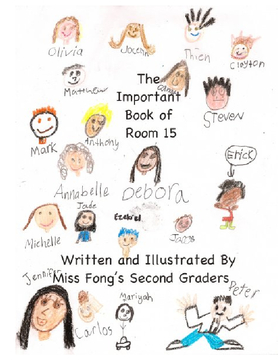 Olivia
Jocelyn
Thien
Clayton
Matthew
The
Important
Book of
Room 15
Steven
Mark
Anthony
Erick
Annabelle
Debora
Jade
Ezekiel
Michelle
Written and Illustrated By
Miss Fong's Second Graders
Jennifer
Carlos
Mariyah
Peter